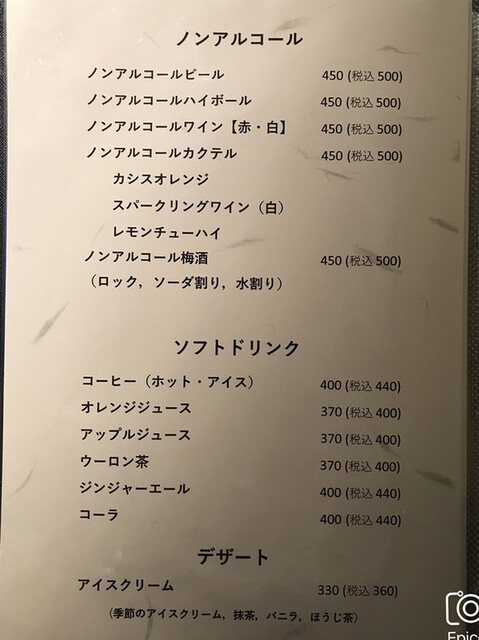 ノンアルコール
ノンアルコールビール 450 (税込 500)
ノンアルコールハイボール 450 (税込 500)
ノンアルコールワイン【赤・白】 450 (税込 500)
ノンアルコールカクテル 450 (税込 500)
カシスオレンジ
スパークリングワイン（白）
レモンチューハイ
ノンアルコール梅酒 450 (税込 500)
（ロック，ソーダ割り，水割り）
ソフトドリンク
コーヒー（ホット・アイス） 400 (税込 440)
オレンジジュース 370 (税込 400)
アップルジュース 370 (税込 400)
ウーロン茶 370 (税込 400)
ジンジャーエール 400 (税込 440)
コーラ 400 (税込 440)
デザート
アイスクリーム 330 (税込 360)
（季節のアイスクリーム，抹茶，バニラ，ほうじ茶）
Epic